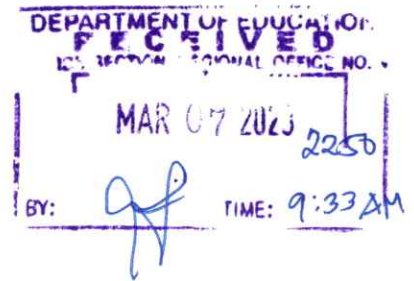 DEPARTMENT OF EDUCATION
RECEIVED
REGIONAL OFFICE NO.
MAR 07 2023
2250
BY: TIME: 9:33 AM